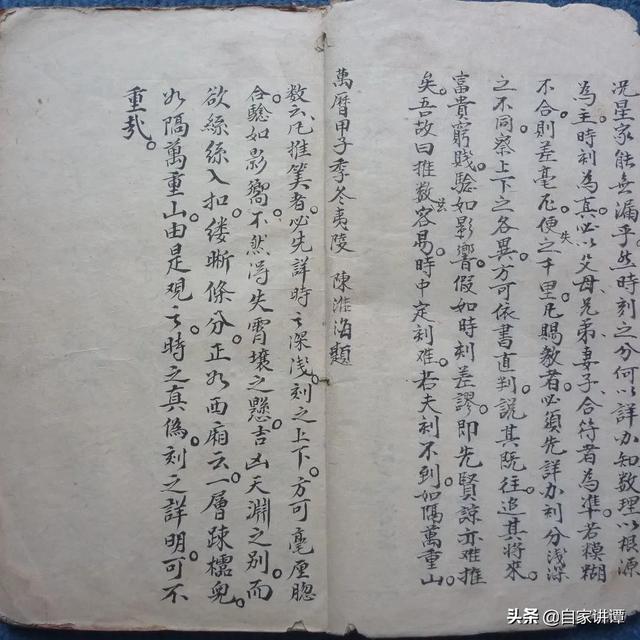 况星家能無漏乎然時刻之分何以詳加知数理以根源
為主時刻為真必以父母兄弟妻子合符者為準。若模糊
不合則差毫厘便失之千里。凡賜教者必須先詳加刻分浅深
之不同。察上下之各異。方可依書直判說其既往追其將来。
富貴窮賤。驗如影響。假如時刻差謬。即先賢諒亦难推
矣。吾故曰推数法容易。時中定刻难。若夫刻不到如隔萬重山
萬曆甲子季冬夷陵 陳淮海題
数云。凡推筭者必先詳時之深浅。刻之上下。方可毫厘脗
合。驗如影嚮。不然得失霄壤之懸。吉凶天淵之别。而
欲絲絲入扣。缕晰條分。正如西廂云一層踈櫺兒。
如隔萬重山由是观之。時之真偽。刻之詳明可不
重哉。
头条 @自家讲谭